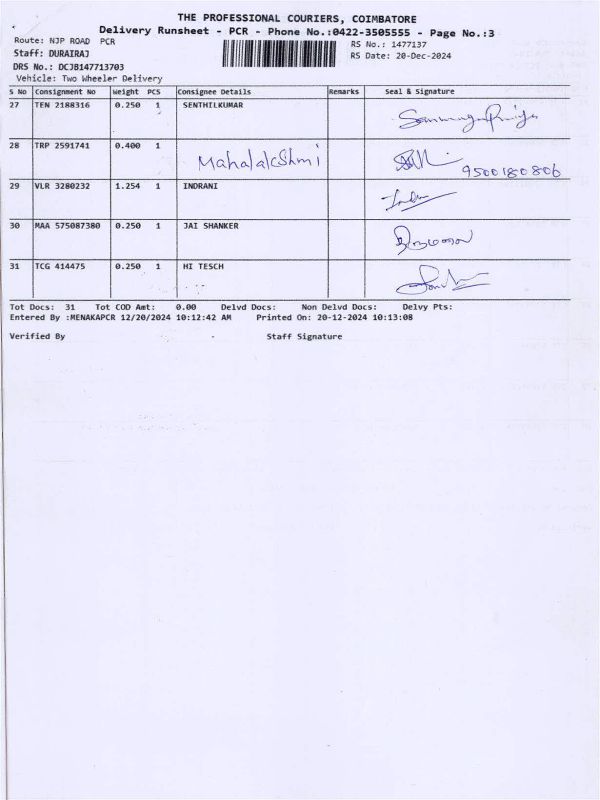 THE PROFESSIONAL COURIERS, COIMBATORE
Delivery Runsheet - PCR - Phone No.:0422-3505555 - Page No.:3
Route: NJP ROAD PCR
RS No.: 1477137
Staff: DURAIRAJ
RS Date: 20-Dec-2024
DRS No.: DCJB147713703
Vehicle: Two Wheeler Delivery
S No Consignment No Weight PCS Consignee Details Remarks Seal & Signature
27 TEN 2188316 0.250 1 SENTHILKUMAR
28 TRP 2591741 0.400 1 Mahalakshmi 9500180806
29 VLR 3280232 1.254 1 INDRANI
30 MAA 575087380 0.250 1 JAI SHANKER
31 TCG 414475 0.250 1 HI TESCH
Tot Docs: 31 Tot COD Amt: 0.00 Delvd Docs: Non Delvd Docs: Delvy Pts:
Entered By :MENAKAPCR 12/20/2024 10:12:42 AM Printed On: 20-12-2024 10:13:08
Verified By Staff Signature